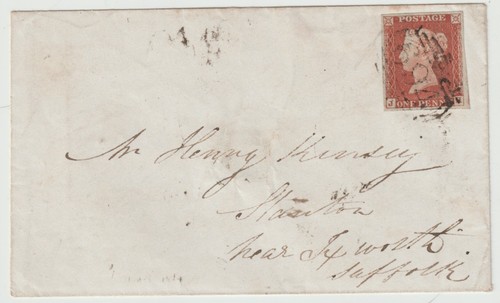 POSTAGE
J ONE PENNY
Mr Henry Kersey
Stanton
near Ixworth
Suffolk